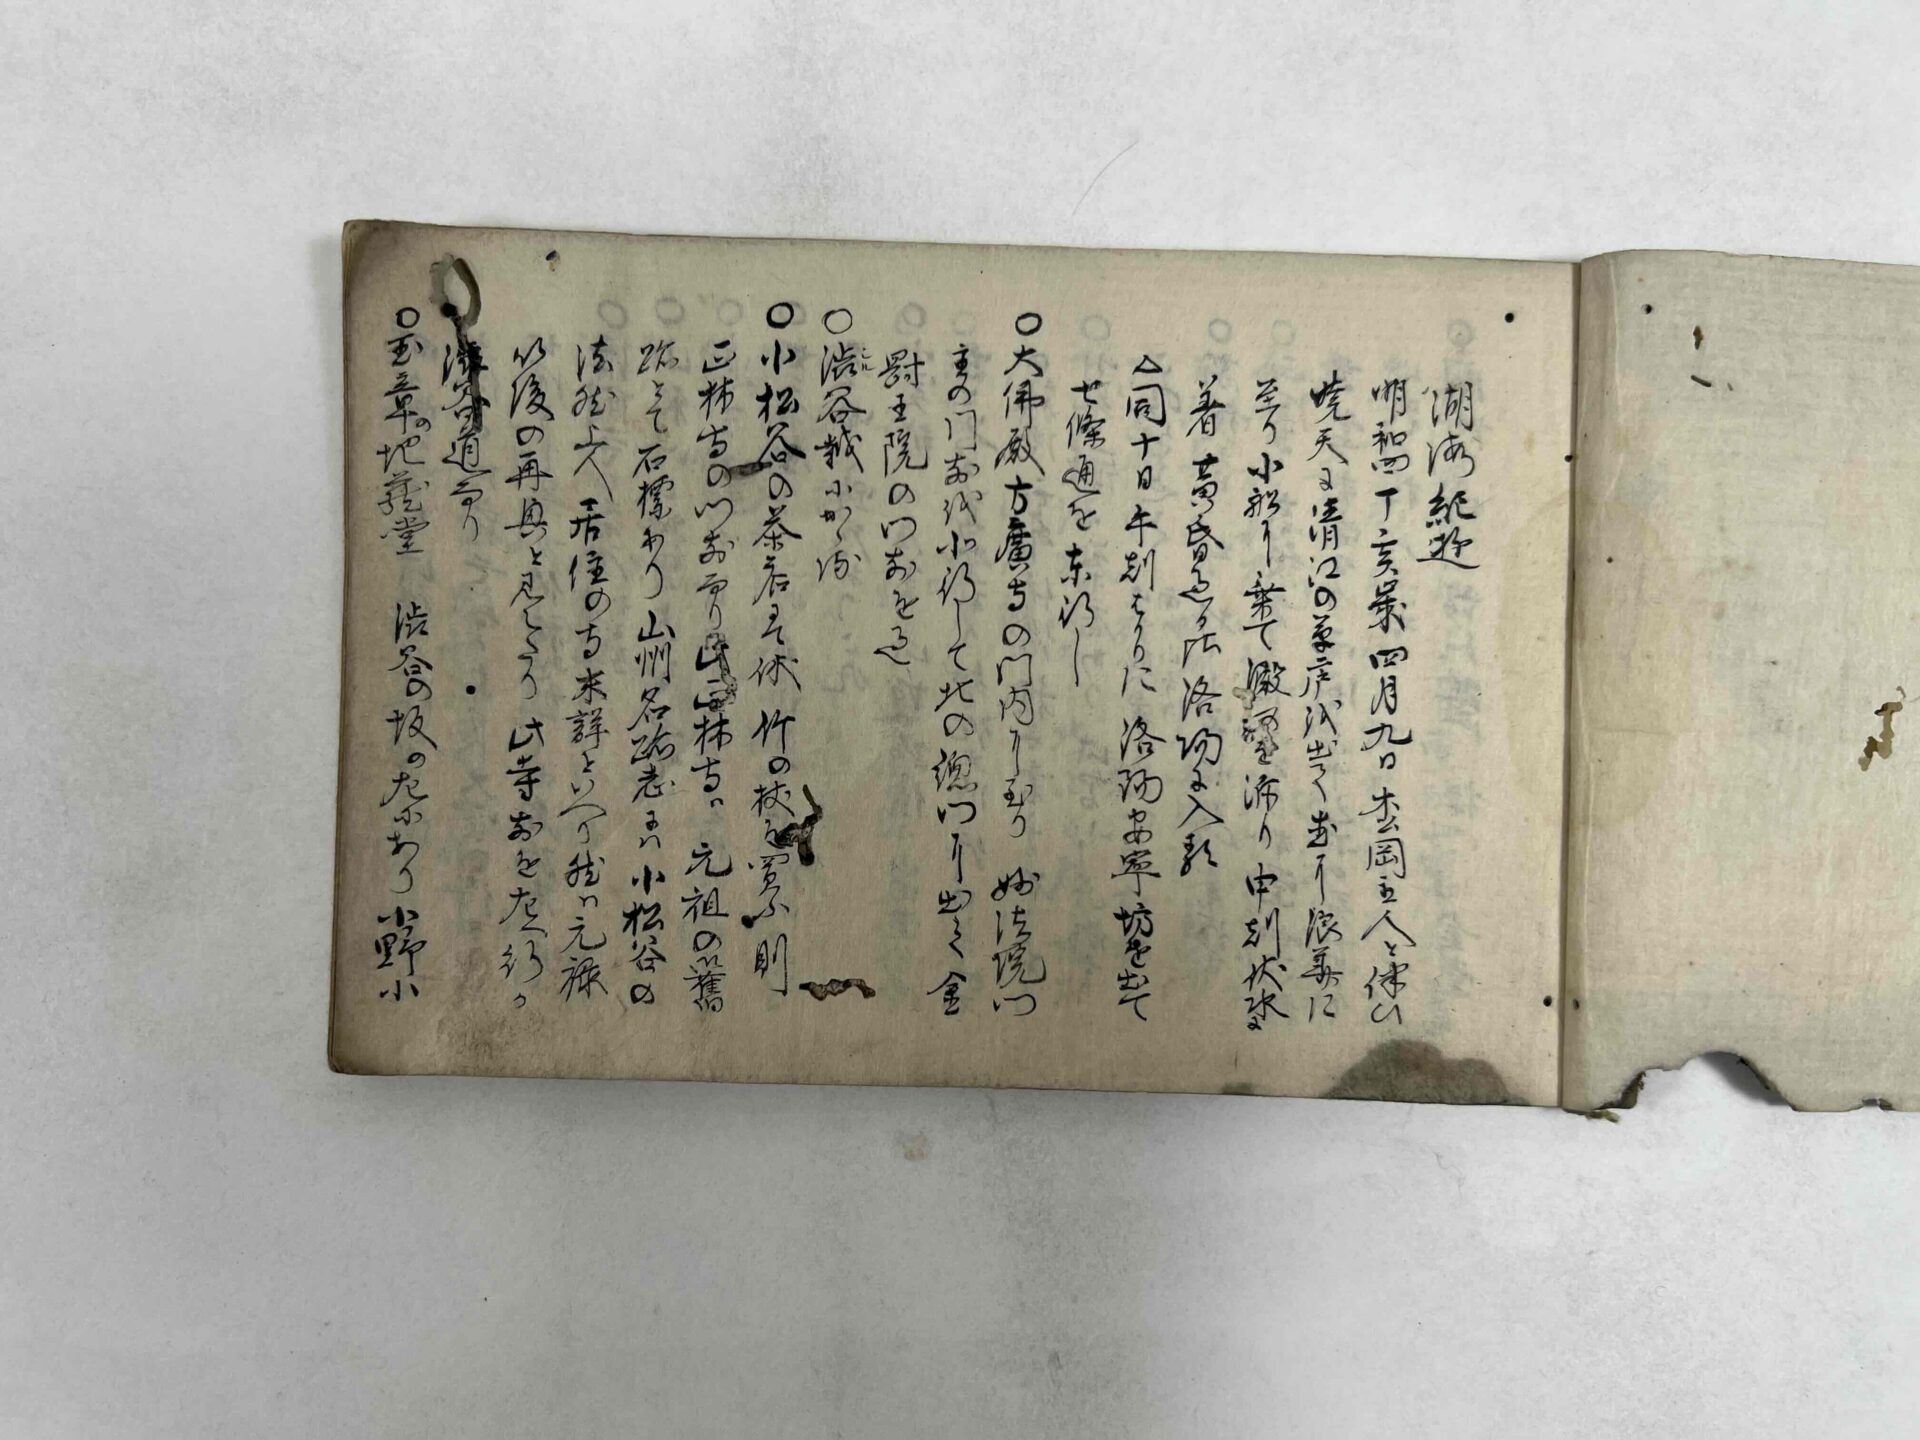 湖海紀遊
明和四丁亥歳四月九日 杏岡主人と伴ひ
暁天に清江の草庵を出て 直に浪華に
至り小船に乗て 澱 泝り 申刻伏水に
着 黄昏過る比洛陽に入
△同十日午刻はかりに 洛陽 寧坊を出て
七條通を東行し
○大佛殿方廣寺の門内に至り 妙法院門
主の門前を北行して 北の 門に出て 金
罸王院の門前を過
○渋谷越にかゝる
○小松谷の茶店にて休 竹の杖を買ふ 則
正林寺の門前なり 此正林寺ハ 元祖の舊
跡とて 石標あり 山州名跡志にハ 小松谷の
法然上人居住の寺未詳といへり 然ハ元禄
以後の再興と見へたり 此寺前を左へ行か
渋谷道なり
○玉章の地蔵堂 渋谷の坂の左にあり 小野小